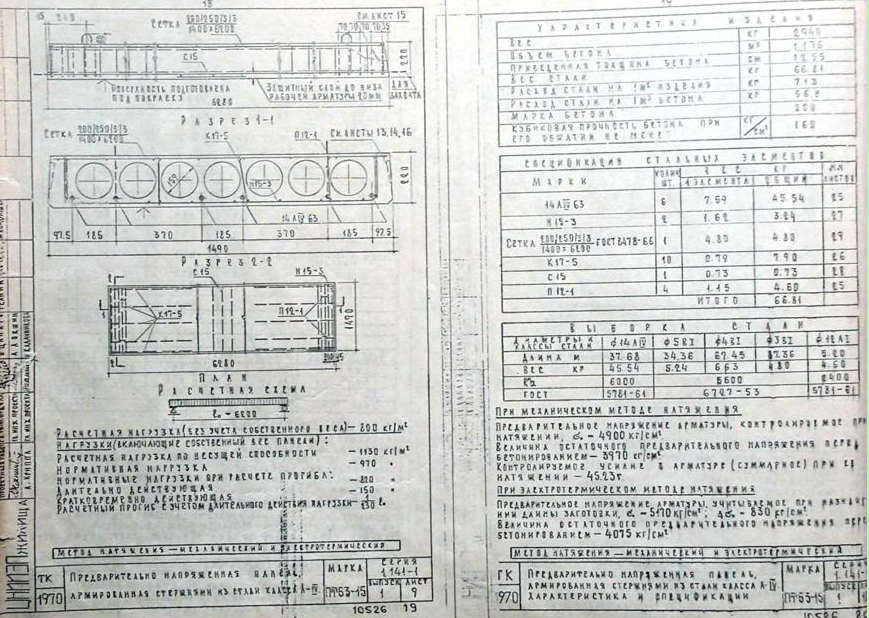 18
Сетка 200/250/3/3
1400×6200
См. лист 15
С15
220
Поверхность подготовлена
под покраску
Защитный слой до низа
рабочей арматуры 20мм
Для
захвата
6280
Разрез 1-1
Сетка 200/250/3/3
1400×6200
К17-5
П12-1
См. листы 13,14,16
159
Н15-3
220
14АIV 63
97.5 185 370 370 185 97.5
1490
Разрез 2-2
С15
Н15-3
К17-5
П12-1
1490
6280
План
Расчетная схема
ℓо-6200
Расчетная нагрузка (без учета собственного веса) — 800 кг/м²
Нагрузки (включающие собственный вес панели):
Расчетная нагрузка по несущей способности — 1130 кг/м²
Нормативная нагрузка — 970
Нормативные нагрузки при расчете прогиба:
Длительно действующая
Кратковременно действующая — 150
Расчетный прогиб с учетом длительного действия нагрузки
Метод натяжения — механический и электротермический
ТК
1970
Предварительно напряженная панель,
армированная стержнями из стали класса А-IV
Марка
ПТ63-15
Серия
1.141-1
Выпуск 1
Лист 9
10526 19
Характеристика изделия
Вес кг 2940
Объем бетона м³ 1.176
Приведенная толщина бетона см 12.55
Вес стали кг 66.81
Расход стали на 1м² изделия кг 7.13
Расход стали на 1м³ бетона кг 56.8
Марка бетона 200
Кубиковая прочность бетона при
его обжатии не менее кг/см² 160
Спецификация стальных элементов
Марки
Колич. шт.
Вес кг
1 элемента
Общий
№№ листов
14АIV 63 6 7.59 45.54 25
Н15-3 2 1.62 3.24 27
Сетка 200/250/3/3 1400×6200 ГОСТ 8478-66 1 4.80 4.80 29
К17-5 10 0.79 7.90 26
С15 1 0.73 0.73 28
П12-1 4 1.15 4.60 25
Итого 66.81
Выборка стали
Диаметры и
классы стали ф14АIV ф5ВI ф4ВI ф3ВI ф12АI
Длина м 37.68 34.36 67.45 5.20
Вес кг 45.54 5.24 6.63 4.80 4.60
Rа 6000 5600 2400
ГОСТ 5781-61 6727-53 5781-61
При механическом методе натяжения
Предварительное напряжение арматуры, контролируемое при
натяжении, — 4900 кг/см².
Величина остаточного предварительного напряжения перед
бетонированием — 3970 кг/см².
Контролируемое усилие в арматуре (суммарное) при её
натяжении — 45.23т.
При электротермическом методе натяжения
Предварительное напряжение арматуры, учитываемое при
длины заготовки, — 5170 кг/см²; — 830 кг/см².
Величина остаточного предварительного напряжения перед
бетонированием — 4075 кг/см².
Метод натяжения — механический и электротермический
ТК
1970
Предварительно напряженная панель,
армированная стержнями из стали класса А-IV
Характеристика и спецификации
Марка
ПТ63-15
1.141-1
Выпуск
1
10526